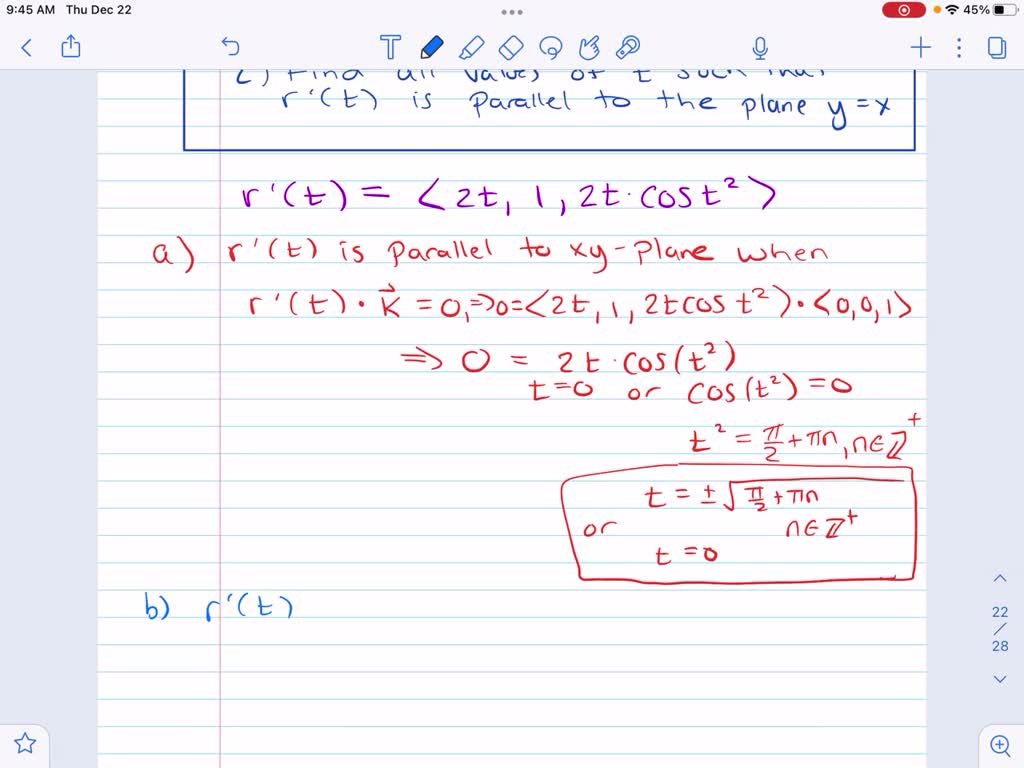 9:45 AM Thu Dec 22
45%
2) Find all values of t such that
r'(t) is parallel to the plane y=x
r'(t) = ⟨2t, 1, 2t·cos t²⟩
a) r'(t) is parallel to xy-plane when
r'(t)·k⃗ = 0, ⇒0=⟨2t, 1, 2t cos t²⟩·⟨0,0,1⟩
⇒ 0 = 2t·cos(t²)
t=0 or cos(t²)=0
t² = π/2 + πn, n∈ℤ⁺
t = ±√(π/2 + πn)
or n∈ℤ⁺
t=0
b) r'(t)
22
/
28